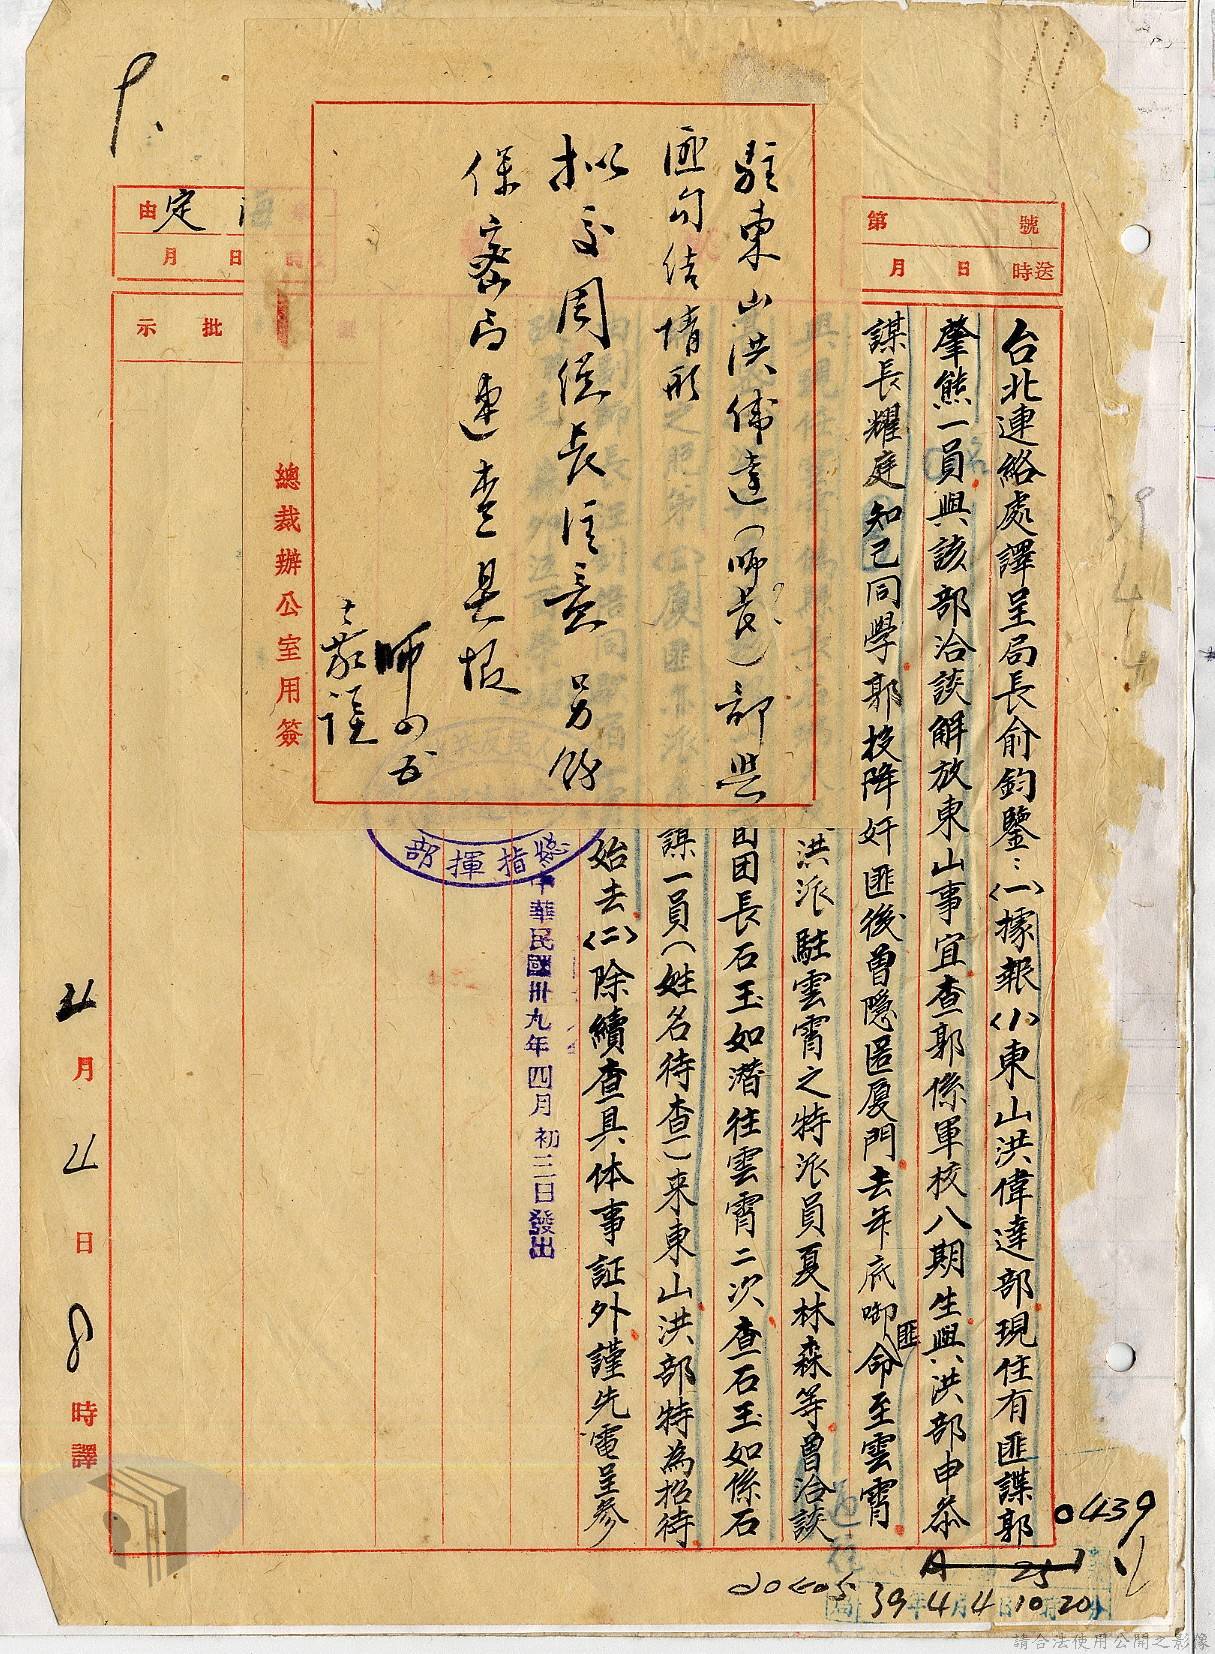 第 號
月 日 時送
台北連絡處譯呈局長俞鈞鑒：〈一〉據報〈1〉東山洪偉達部現住有匪諜郭
肇熊一員與該部洽談解放東山事宜查郭係軍校八期生與洪部申參
謀長耀庭知己同學郭投降奸匪後曾隱匿厦門去年底啣匪命至雲霄
洪派駐雲霄之特派員夏林森等曾洽談
團長石玉如潛往雲霄二次查石玉如係石
謀一員（姓名待查）來東山洪部特為招待
始去〈二〉除續查具体事証外謹先電呈參
中華民國卅九年四月初三日發出
總指揮部
駐東山洪偉達（師長）部與
匪勾結情形
擬交周總長注意另飭
保密局速查具報
職
四五
總裁辦公室用簽
由 定海
月 日 時
批示
月 日 8 時譯
0439
39 4 4 10 20
請合法使用公開之影像